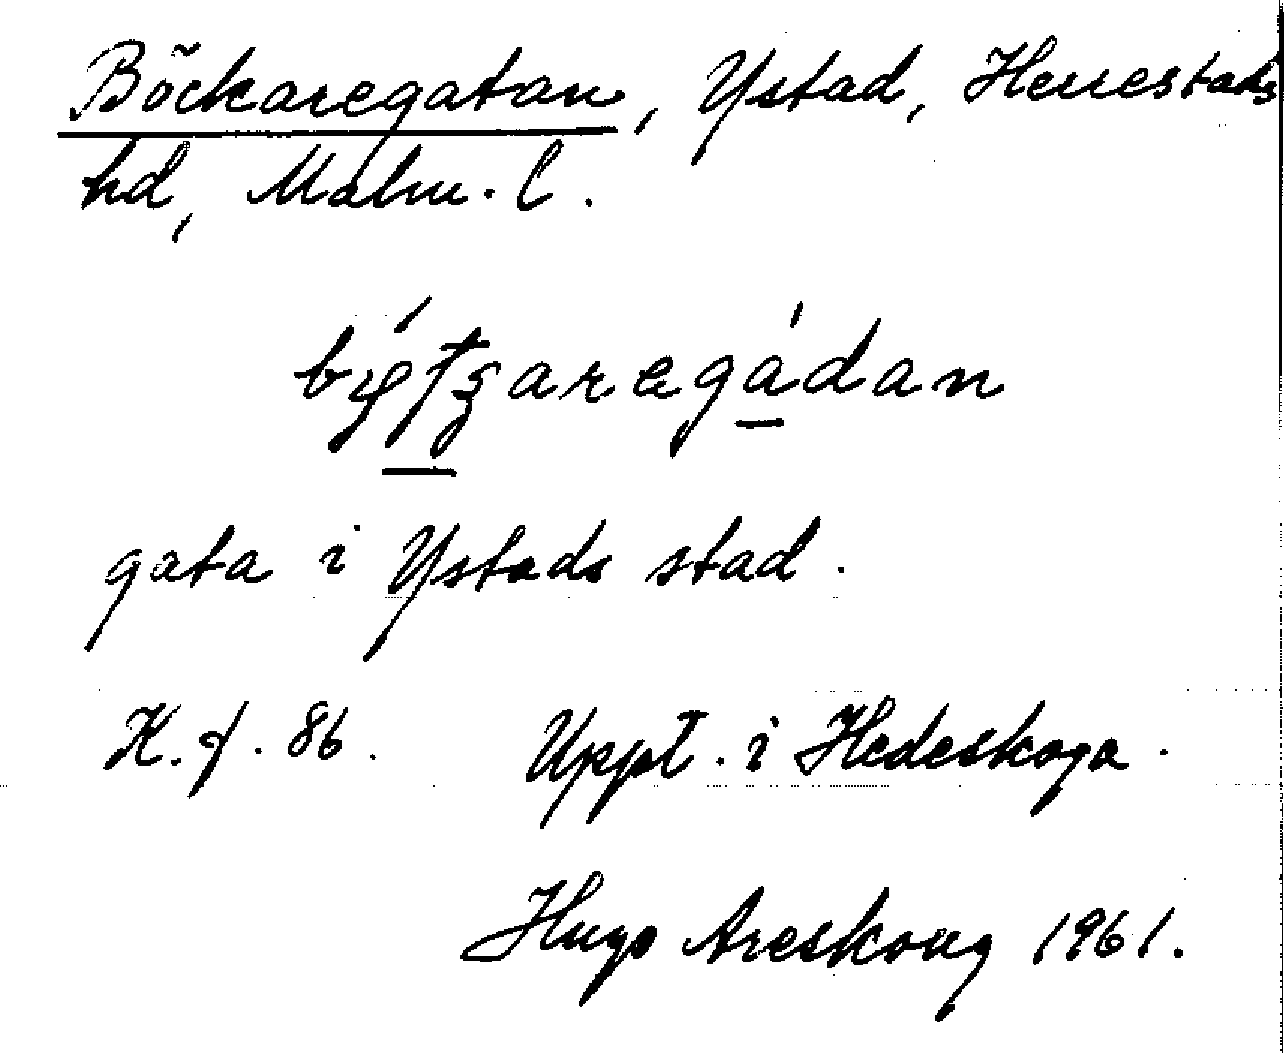 Böckaregatan, Ystad, Herrestads
hd, Malm. l.
gata i Ystads stad.
K. f. 86. Uppt. i Hedeskoga.
Hugo Areskoug 1961.